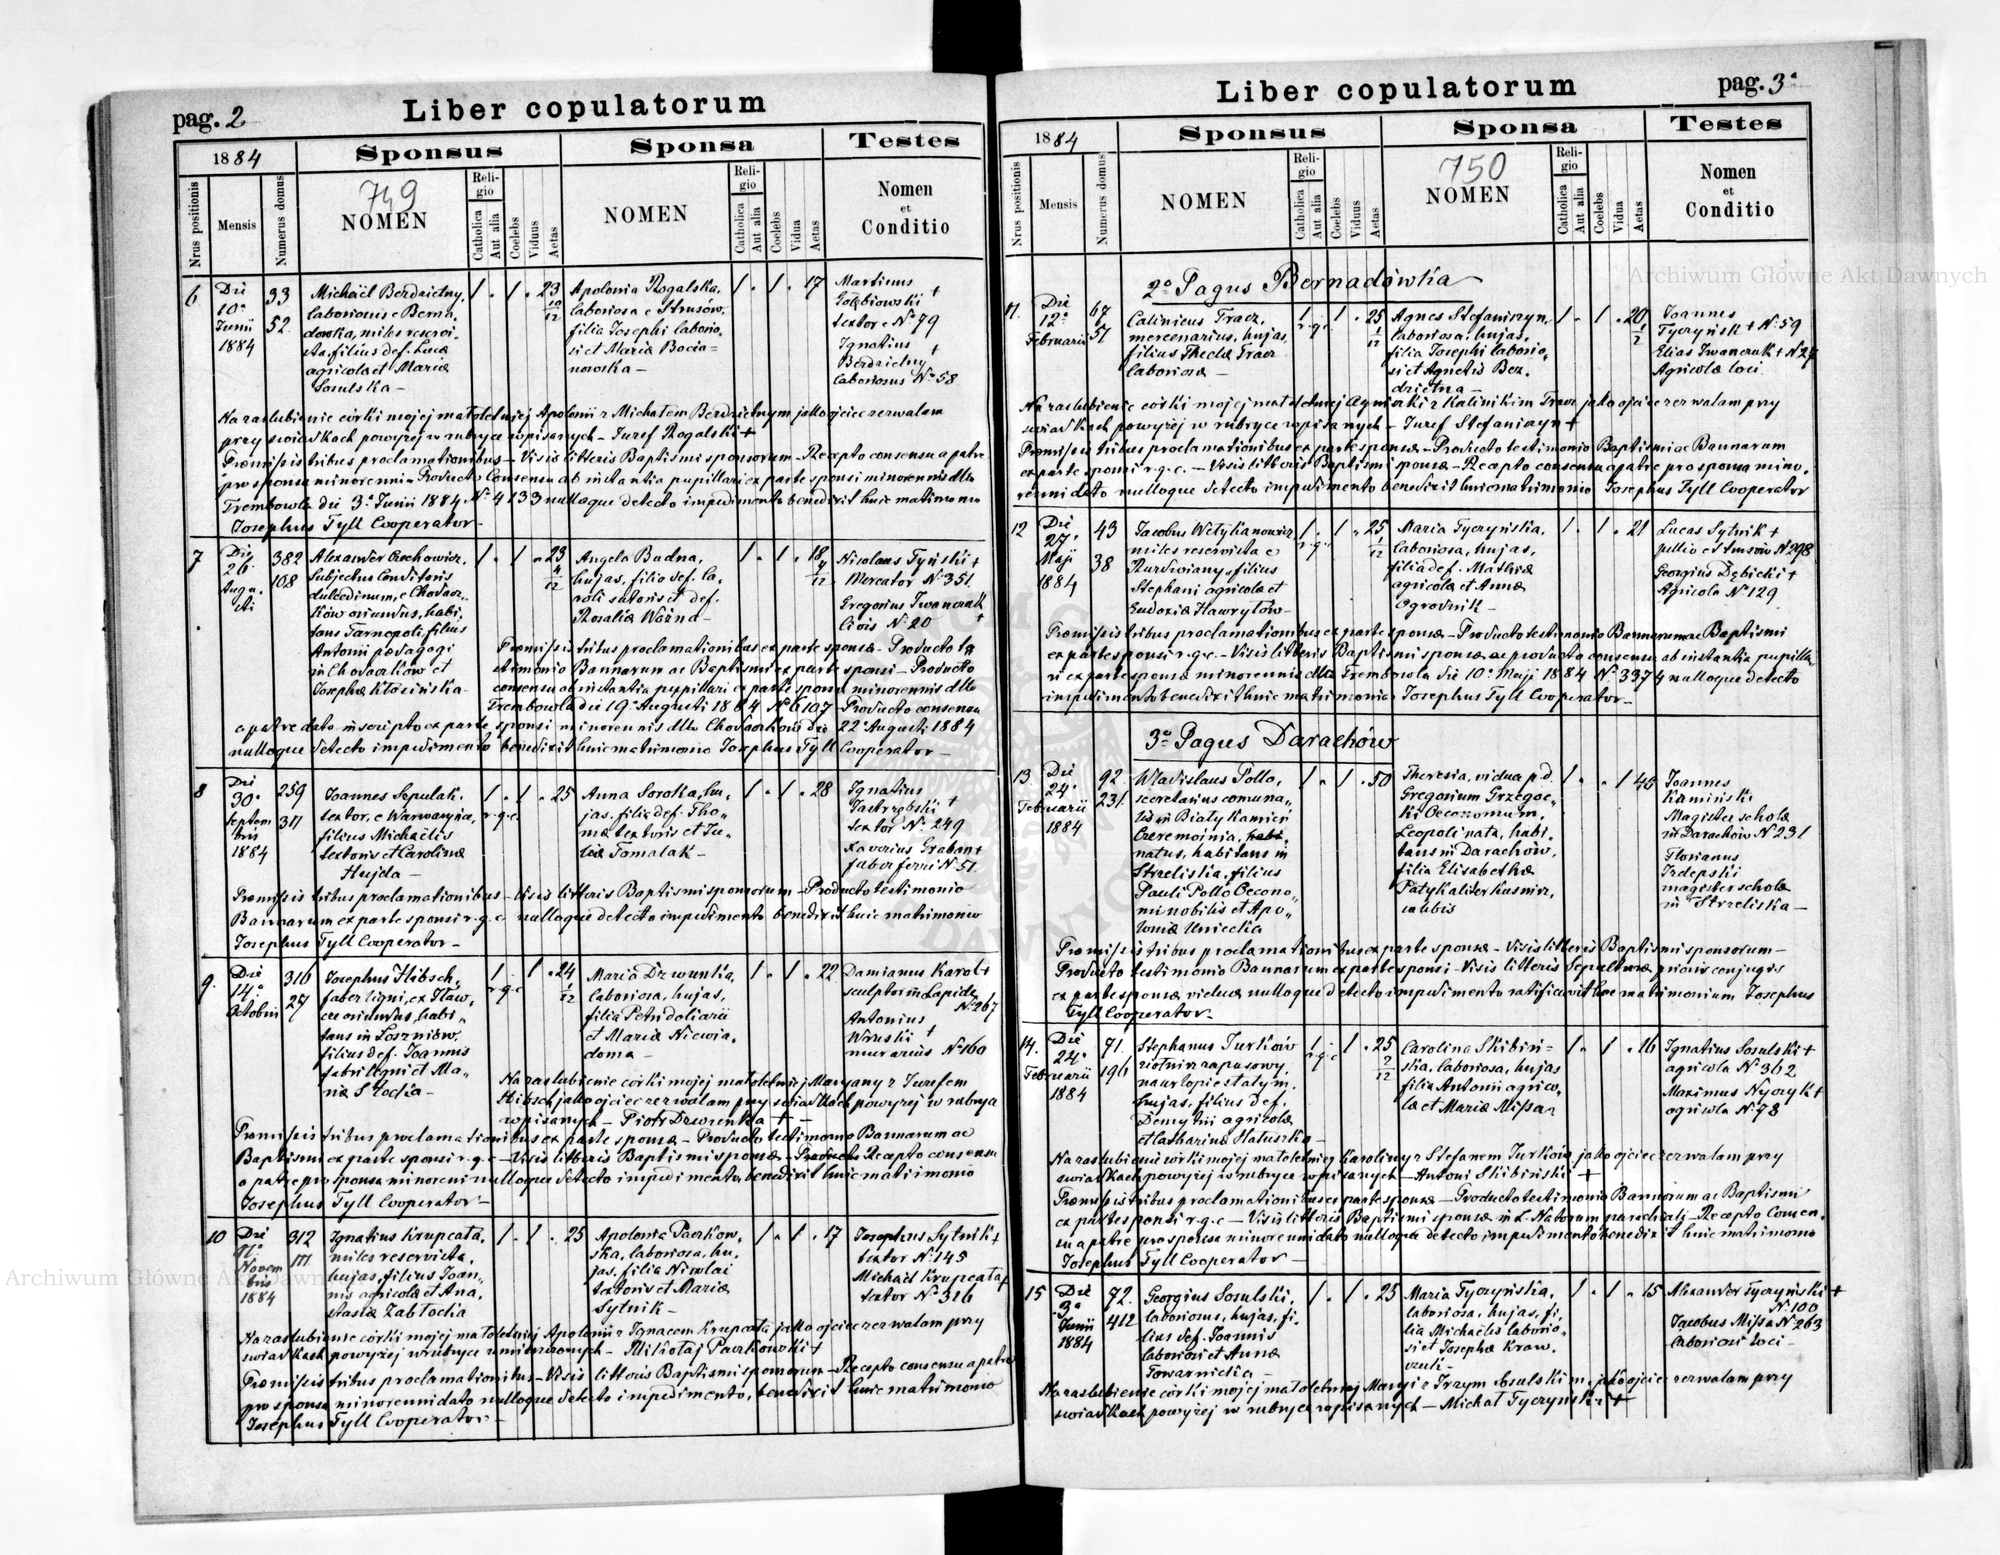 pag. 2
Liber copulatorum
1884
Sponsus
Sponsa
Testes
Nrus positionis
Mensis
Numerus domus
749
NOMEN
Religio
Catholica
Aut alia
Coelebs
Viduus
Aetas
NOMEN
Religio
Catholica
Aut alia
Coelebs
Vidua
Aetas
Nomen
et
Conditio
6
Die
10ª
Junii
1884
33
52
Michaël Berdzietny,
laboriosus e Berna
dowka, miles reservi
sta, filius def. Lucæ
agricolæ et Mariæ
Sosulska —
1 . 1 . 23 10/12
Apolonia Rogalska,
laboriosa e Strusów,
filia Josephi laborio
si et Mariæ Bocia=
nowska —
1 . 1 . 17
Martinus
Gołębiowski +
textor e Nº 79
Ignatius
Berdzietny +
laboriosus Nº 58
Na zaslubienie córki mojej małoletniej Apolonii z Michałem Berdzietnym jako ojciec zezwalam
przy swiadkach powyżej w rubryce wpisanych — Jozef Rogalski +
Præmissis tribus proclamationibus — Visis litteris Baptismi sponsorum — Recepto consensu a patre
pro sponsa minorenni — Producto Consensu ab instantia pupillari ex parte sponsi minorennis dtto
Trembowla die 3ª Junii 1884 Nº 4133 nulloque detecto impedimento benedixit huic matrimonio
Josephus Tyll Cooperator —
7
Die
26
Augu
sti
382
108
Alexander Czechowicz,
Subjectus Conditoris
dulcedinum, e Chodacz
ków oriundus, habi
tans Tarnopoli, filius
Antonii pædagogi
in Chodaczków et
Josephæ Kłosińska —
1 . 1 . 23 4/12
Angela Budna,
hujas, filia def. Ca
roli sutoris et def.
Rosaliæ Wozna —
1 . 1 . 18 4/12
Nicolaus Tyński +
Mercator Nº 351
Gregorius Iwanczuk +
Civis Nº 20
Præmissis tribus proclamationibus ex parte sponsæ — Producto te
stimonio Bannorum ac Baptismi ex parte sponsi — Producto
consensu ab instantia pupillari ex parte sponsæ minorennis dtto
Trembowla die 19ª Augusti 1884 Nº 6107 — Producto consensu
a patre dato inscripto ex parte sponsi minorennis dtto Chodaczków die 22ª Augusti 1884
nulloque detecto impedimento benedixit huic matrimonio Josephus Tyll Cooperator —
8
Die
30ª
Septem
bris
1884
259
311
Joannes Sepulak
textor, e Warwarynce,
filius Michaëlis
textoris et Carolinæ
Hujda —
1 . 1 . 25
r.g.c.
Anna Soroka, hu,
jas, filia def. Tho
mæ textoris et Ju,
liæ Tomalak —
1 . 1 . 28
Ignatius
Jastrzębski +
textor Nº 249
Xaverius Graban +
faber ferri Nº 51
Præmissis tribus proclamationibus — Visis litteris Baptismi sponsorum — Producto testimonio
Bannorum ex parte sponsi r.g.c nulloque detecto impedimento benedixit huic matrimonio
Josephus Tyll Cooperator —
9.
Die
14ª
Octobris
316
27
Josephus Hibsch,
faber ligni, ex Haw
cze oriundus, habi„
tans in Loszniów,
filius def. Joannis
fabri ligni et Ma„
riæ Stocka —
1 . 1 . 24 1/12
r.g.c
Maria Dzwonka,
laboriosa, hujas,
filia Petri doliarii
et Mariæ Niewia,
doma —
1 . 1 . 22
Damianus Karol +
sculptor in Lapide
Nº 267
Antonius
Wruski +
murarius Nº 160
Na zaslubienie córki mojej małoletniej Maryany z Jozefem
Hibsch jako ojciec zezwalam przy swiadkach powyżej w rubryce
wpisanych — Piotr Dzwonka + —
Præmissis tribus proclamationibus ex parte sponsæ — Producto testimonio Bannorum ac
Baptismi ex parte sponsi r.g.c — Visis litteris Baptismi sponsæ — Producto Recepto consensu
a patre pro sponsa minorenni nulloque detecto impedimento, benedixit huic matrimonio
Josephus Tyll Cooperator —
10
Die
Novem
bris
1884
312
111
Ignatius Krupcata,
miles reservista,
hujas, filius Joan„
nis agricolæ et Ana,
stasiæ Zabłocka
1 . 1 . 25
Apolonia Paczkow,
ska, laboriosa, hu,
jas, filia Nicolai
textoris et Mariæ
Sytnik —
1 . 1 . 17
Josephus Sytnik +
textor Nº 145
Michaël Krupcata +
textor Nº 316
Na zaslubienie córki mojej małoletniej Apolonii z Ignacem Krupcatą jako ojciec zezwalam przy
swiadkach powyżej w rubryce umieszczonych — Mikołaj Paczkowski +
Præmissis tribus proclamationibus — Visis litteris Baptismi sponsorum — Recepto consensu a patre
pro sponsa minorenni dato nulloque detecto impedimento, benedixit huic matrimonio
Josephus Tyll Cooperator —
pag. 3ª
Liber copulatorum
1884
Sponsus
Sponsa
Testes
Nrus positionis
Mensis
Numerus domus
NOMEN
Religio
Catholica
Aut alia
Coelebs
Viduus
Aetas
750
NOMEN
Religio
Catholica
Aut alia
Coelebs
Vidua
Aetas
Nomen
et
Conditio
2º Pagus Bernadówka
11.
Die
12ª
Februarii
67
51
Calinicus Tracz,
mercenarius, hujas,
filius Theclæ Tracz
laboriosæ —
1 . 1 . 25 1/12
r.g.c
Agnes Stefaniszyn,
laboriosa, hujas,
filia Josephi laborio,
si et Agnetis Ber,
dzietna —
1 . 1 . 20 1/2
Joannes
Tyczyński + Nº 59
Elias Iwanczuk + Nº 27
Agricolæ loci
Na zaslubienie córki mojej małoletniej Agnieszki z Kalinikim Tracz jako ojciec zezwalam przy
swiadkach powyżej w rubryce wpisanych — Jozef Stefaniszyn +
Præmissis tribus proclamationibus ex parte sponsæ — Producto testimonio Baptismi ac Bannorum
ex parte sponsi r.g.c. — Visis litteris Baptismi sponsæ — Recepto consensu a patre pro sponsa mino,
renni dato nulloque detecto impedimento benedixit huic matrimonio Josephus Tyll Cooperator
12
Die
27ª
Maji
1884
43
38
Jacobus Wetykanowicz
miles reservista e
Rurdwiany, filius
Stephani agricolæ et
Eudoxiæ Hawrylów —
1 . 1 . 25 1/12
r.g.c
Maria Tyczyńska,
laboriosa, hujas,
filia def. Mathiæ
agricolæ et Annæ
Ogrodnik —
1 . 1 . 21
Lucas Sytnik +
pellio e Strusów Nº 298
Georgius Dębicki +
Agricola Nº 129
Præmissis tribus proclamationibus ex parte sponsæ — Producto testimonio Bannorum ac Baptismi
ex parte sponsi r.g.c. — Visis litteris Baptismi sponsæ ac producto consensu ab instantia pupilla,
ri ex parte sponsæ minorennis dtto Trembowla die 10ª Maji 1884 Nº 3374 nulloque detecto
impedimento benedixit huic matrimonio Josephus Tyll Cooperator —
3º Pagus Darachów
13
Die
24ª
Februarii
1884
92.
231.
Władislaus Pollo,
secretarius comuna„
lis in Biały Kamień
Czeremoinia, habi
natus, habitans in
Strzeliska, filius
Pauli Pollo Oecono„
mi nobilis et Apo„
loniæ Unicka
1 . 1 . 50
Theresia, vidua p.d.
Gregorium Grzegoc„
ki Oeconomum,
Leopoli nata, habi,
tans in Darachów,
filia Elisabethæ
Patykaliter Kusnirz,
cælibis
1 . . 1 40
Joannes
Kaminski
Magister scholæ
in Darachów Nº 231
Florianus
Zdepski
magister scholæ
in Strzeliska —
Præmissis tribus proclamationibus ex parte sponsæ — Visis litteris Baptismi sponsorum —
Producto testimonio Bannorum ex parte sponsi — Visis litteris Sepulturæ prioris conjugis
ex parte sponsæ viduæ nulloque detecto impedimento ratificavit hoc matrimonium Josephus
Tyll Cooperator —
14.
Die
24ª
Februarii
1884
71.
196
Stephanus Turków
żołnierz zapasowy,
na urlopie stałym,
hujas, filius def.
Demytrii agricolæ
et Catharinæ Hałuszka —
1 . 1 . 25 2/12
r.g.c
Carolina Skibiń=
ska, laboriosa, hujas
filia Antonii agrico,
læ et Mariæ Missa
1 . 1 . 16
Ignatius Sosulski +
agricola Nº 362
Maximus Nyczyk +
agricola Nº 78
Na zaslubienie córki mojej małoletniej Karoliny z Stefanem Turków jako ojciec zezwalam przy
swiadkach powyżej w rubryce wpisanych — Antoni Skibiński +
Præmissis tribus proclamationibus ex parte sponsæ — Producto testimonio Bannorum ac Baptismi
ex parte sponsi r.g.c — Visis litteris Baptismi sponsæ in L. Natorum parochiali — Recepto Consen,
su a patre pro sponsa minorenni dato nulloque detecto impedimento benedixit huic matrimonio
Josephus Tyll Cooperator —
15
Die
3ª
Junii
1884
72.
412
Georgius Sosulski,
laboriosus, hujas, fi,
lius def. Joannis
laboriosi et Annæ
Towarnicka —
1 . 1 . 25
Maria Tyczyńska,
laboriosa, hujas, fi,
lia Michaëlis laborio,
si et Josephæ Kraw,
czuk —
1 . 1 . 15
Alexander Tyczyński +
Nº 100
Jacobus Missa Nº 263
laboriosi loci —
Na zaslubienie córki mojej małoletniej Maryi z Jrzym Sosulskim jako ojciec zezwalam przy
swiadkach powyżej w rubryce wpisanych — Michał Tyczyński +
Archiwum Główne Akt Dawnych
Archiwum Główne Akt Dawnych